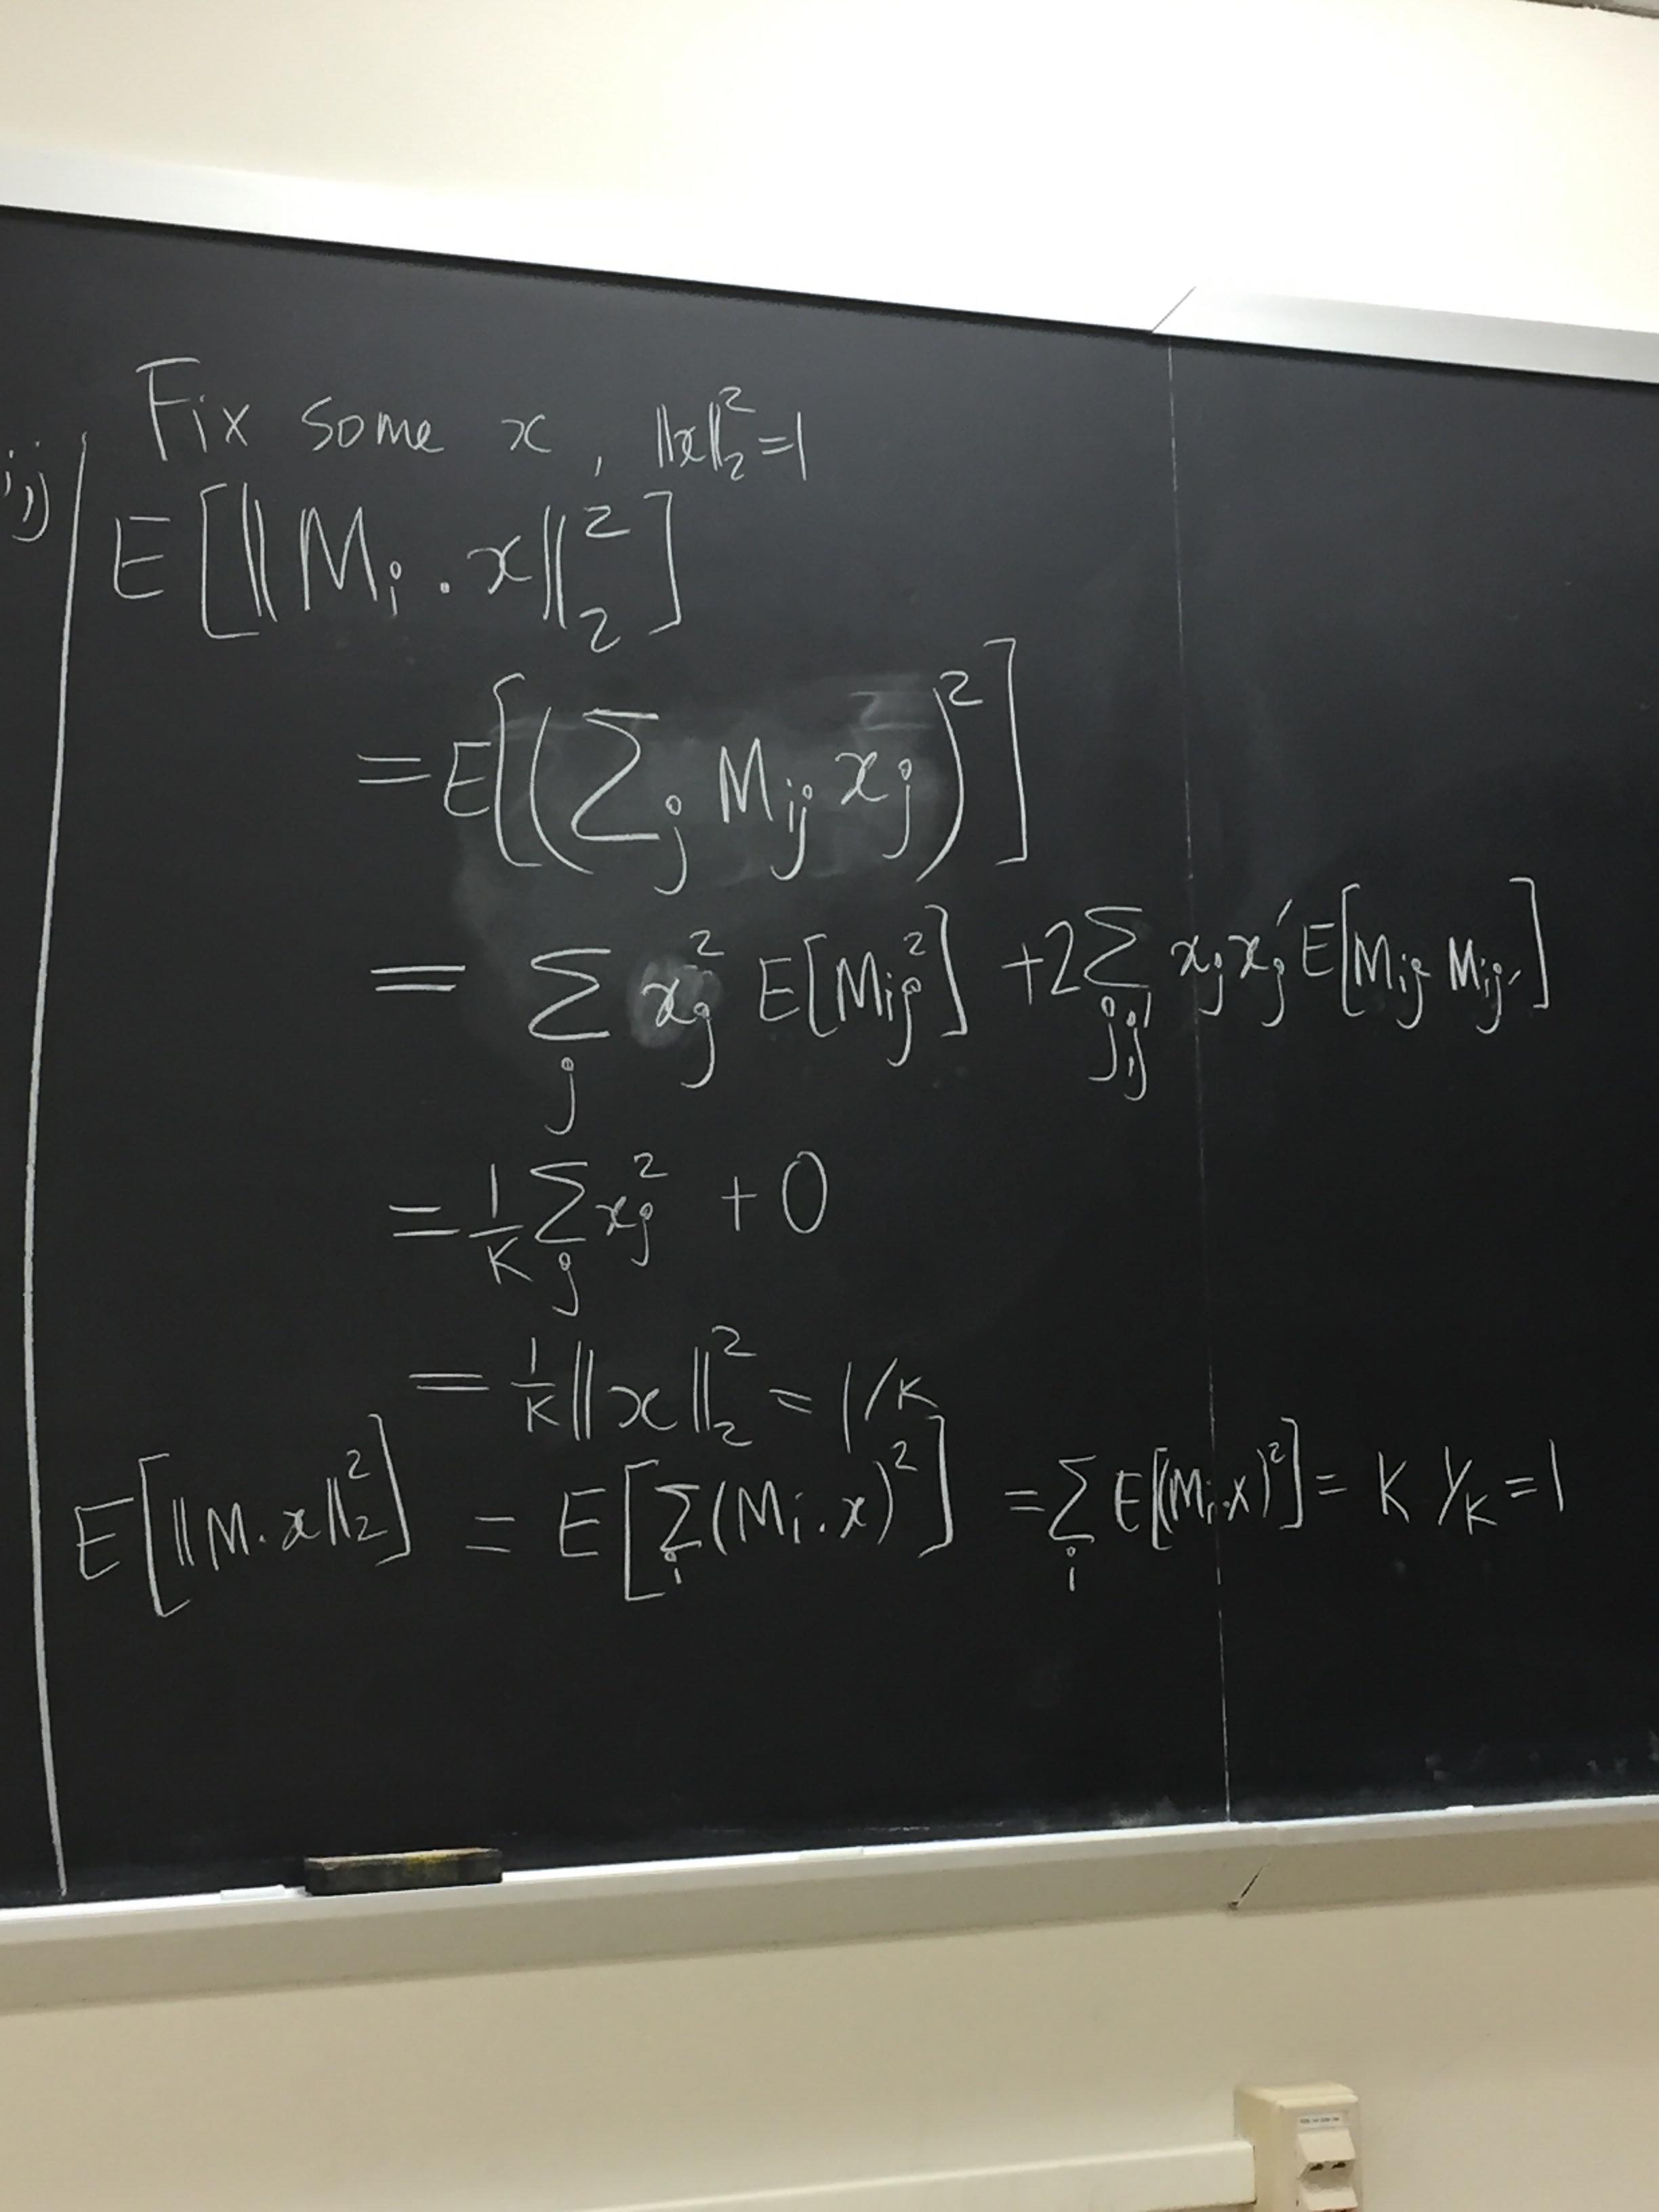 Fix some x, ‖x‖₂²=1
i,j)
E[‖Mᵢ.x‖₂²]
=E[(∑ⱼ Mᵢⱼ xⱼ)²]
= ∑ⱼ xⱼ² E[Mᵢⱼ²] +2∑ⱼ,ⱼ′ xⱼxⱼ′ E[Mᵢⱼ Mᵢⱼ′]
= 1/K ∑ⱼ xⱼ² + 0
= 1/K ‖x‖₂² = 1/K
E[‖M.x‖₂²] = E[∑ᵢ(Mᵢ.x)²] =∑ᵢ E[(Mᵢ.x)²] = K 1/K = 1